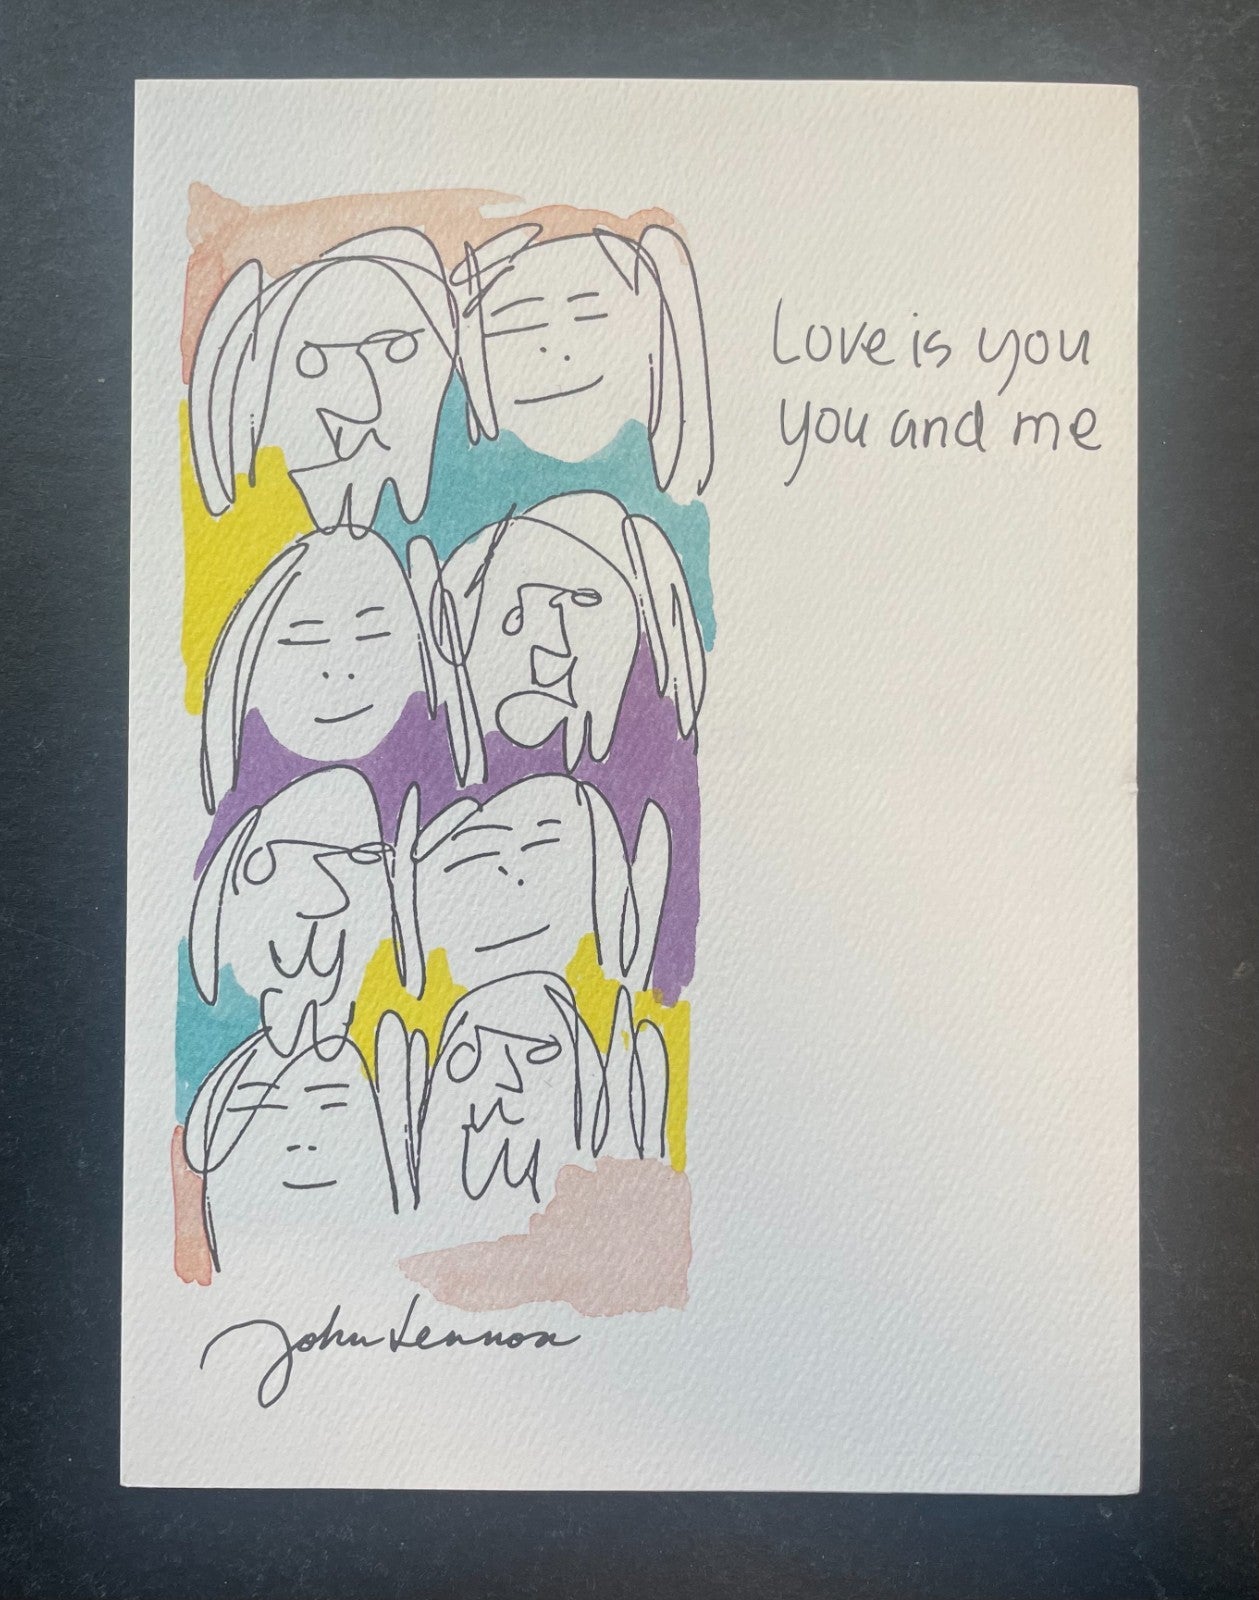 Love is you
you and me
John Lennon